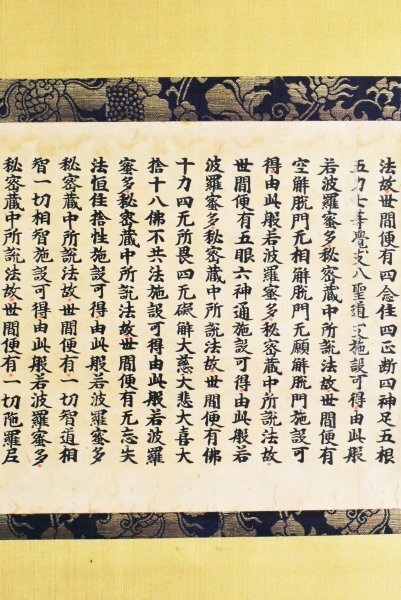 法故世間便有四念住四正断四神足五根
五力七等覺支八聖道支施設可得由此般
若波羅蜜多秘密藏中所説法故世間便有
空解脱門无相解脱門无願解脱門施設可
得由此般若波羅蜜多秘密藏中所説法故
世間便有五眼六神通施設可得由此般若
波羅蜜多秘密藏中所説法故世間便有佛
十力四无所畏四无礙解大慈大悲大喜大
捨十八佛不共法施設可得由此般若波羅
蜜多秘密藏中所説法故世間便有无忘失
法恒住捨性施設可得由此般若波羅蜜多
秘密藏中所説法故世間便有一切智道相
智一切相智施設可得由此般若波羅蜜多
秘密藏中所説法故世間便有一切陁羅尼